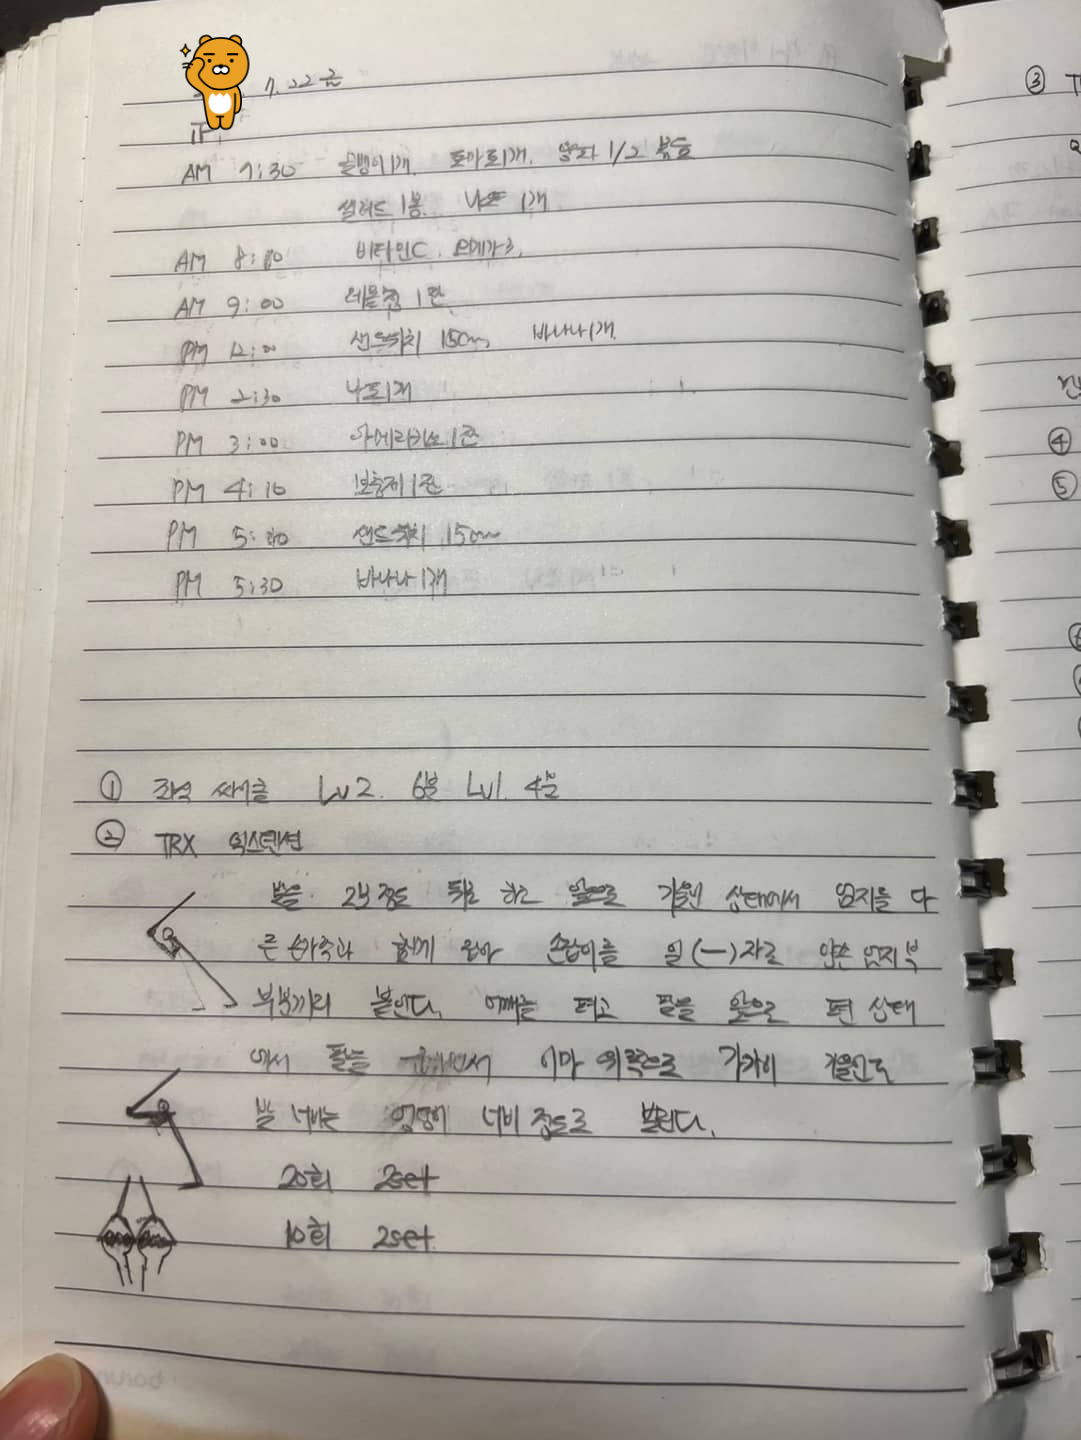 7. 22 금
AM 7:30 1개. 토마토1개. 감자 1/2 볶음
샐러드 1봉. 1개
AM 8:00 비타민C. 오메가3.
AM 9:00 1잔
PM 12:00 샌드위치 15cm 바나나1개.
PM 2:30 1개
PM 3:00 아메리카노 1잔
PM 4:10 보충제 1잔
PM 5:00 샌드위치 15cm
PM 5:30 바나나 1개
① 좌식 싸이클 Lv2. 6분 Lv1. 4분
② TRX 익스텐션
발을 2보 정도 뒤로 하고 앞으로 기울인 상태에서 엄지를 다
른 손가락과 함께 모아 손잡이를 일(一)자로 양손 엄지 부
부분끼리 붙인다. 어깨는 펴고 팔을 앞으로 편 상태
에서 팔을 이마 쪽으로 가까이
발 너비는 엉덩이 너비 정도로 벌린다.
20회 2set
10회 2set
③
④
⑤